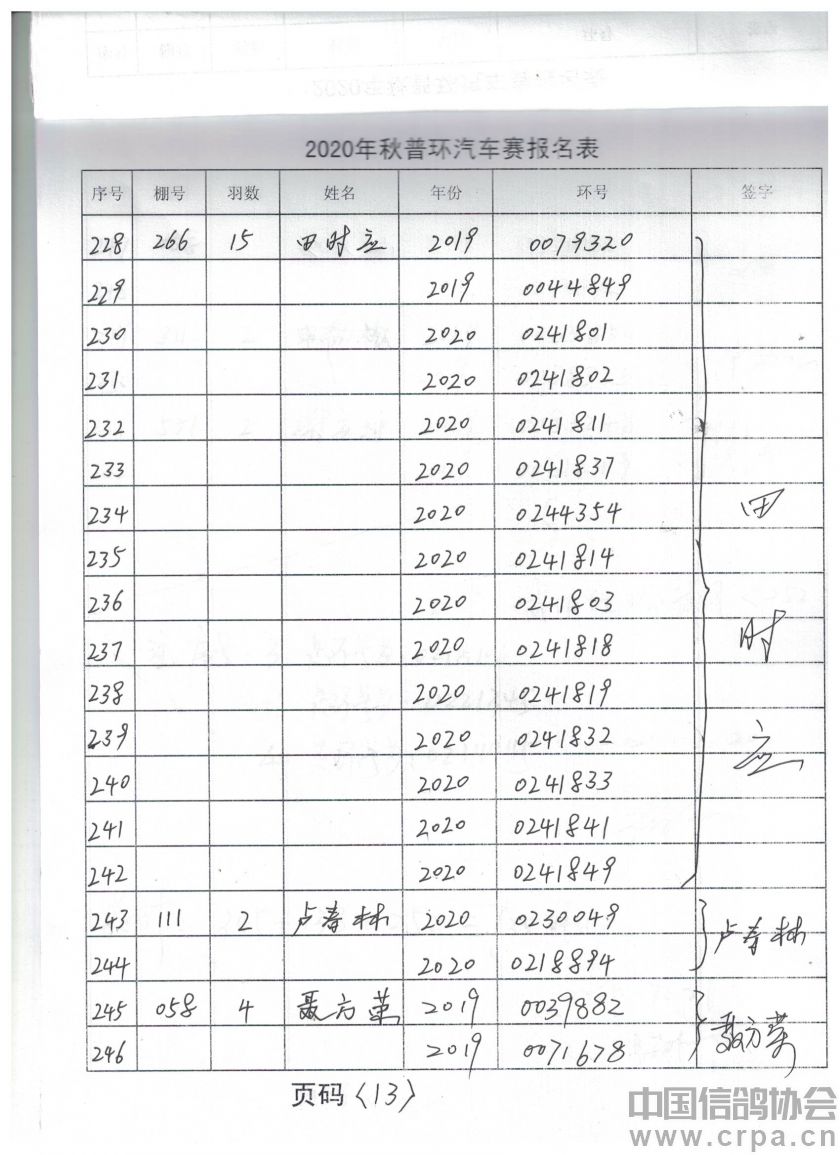 2020年秋普环汽车赛报名表
序号 棚号 羽数 姓名 年份 环号 签字
228 266 15 田时应 2019 0079320
229 2019 0044849
230 2020 0241801
231 2020 0241802
232 2020 0241811
233 2020 0241837
234 2020 0244354 田
235 2020 0241814
236 2020 0241803
237 2020 0241818 时
238 2020 0241819
239 2020 0241832 应
240 2020 0241833
241 2020 0241841
242 2020 0241849
243 111 2 卢春林 2020 0230049 卢春林
244 2020 0218894
245 058 4 聂方荣 2019 0039882 聂方荣
246 2019 0071678
页码〈13〉
中国信鸽协会
www.crpa.cn